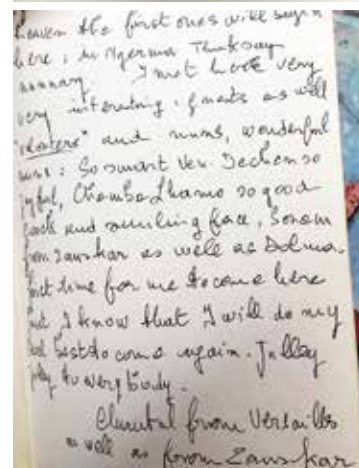 heaven the first ones will begin
here, in Nyerma Thiksay
nunnary. I met here very
very interesting, guests as well
and nuns, wonderful
nuns: So smart Ven. Dechen so
joyful, Chamba Lhamo so good
cook and smiling face, Sonam
from Zanskar as well as Dolma.
first time for me to come here
but I know that I will do my
best to come again. Julley
to every body.
from Versailles
as well as from Zanskar